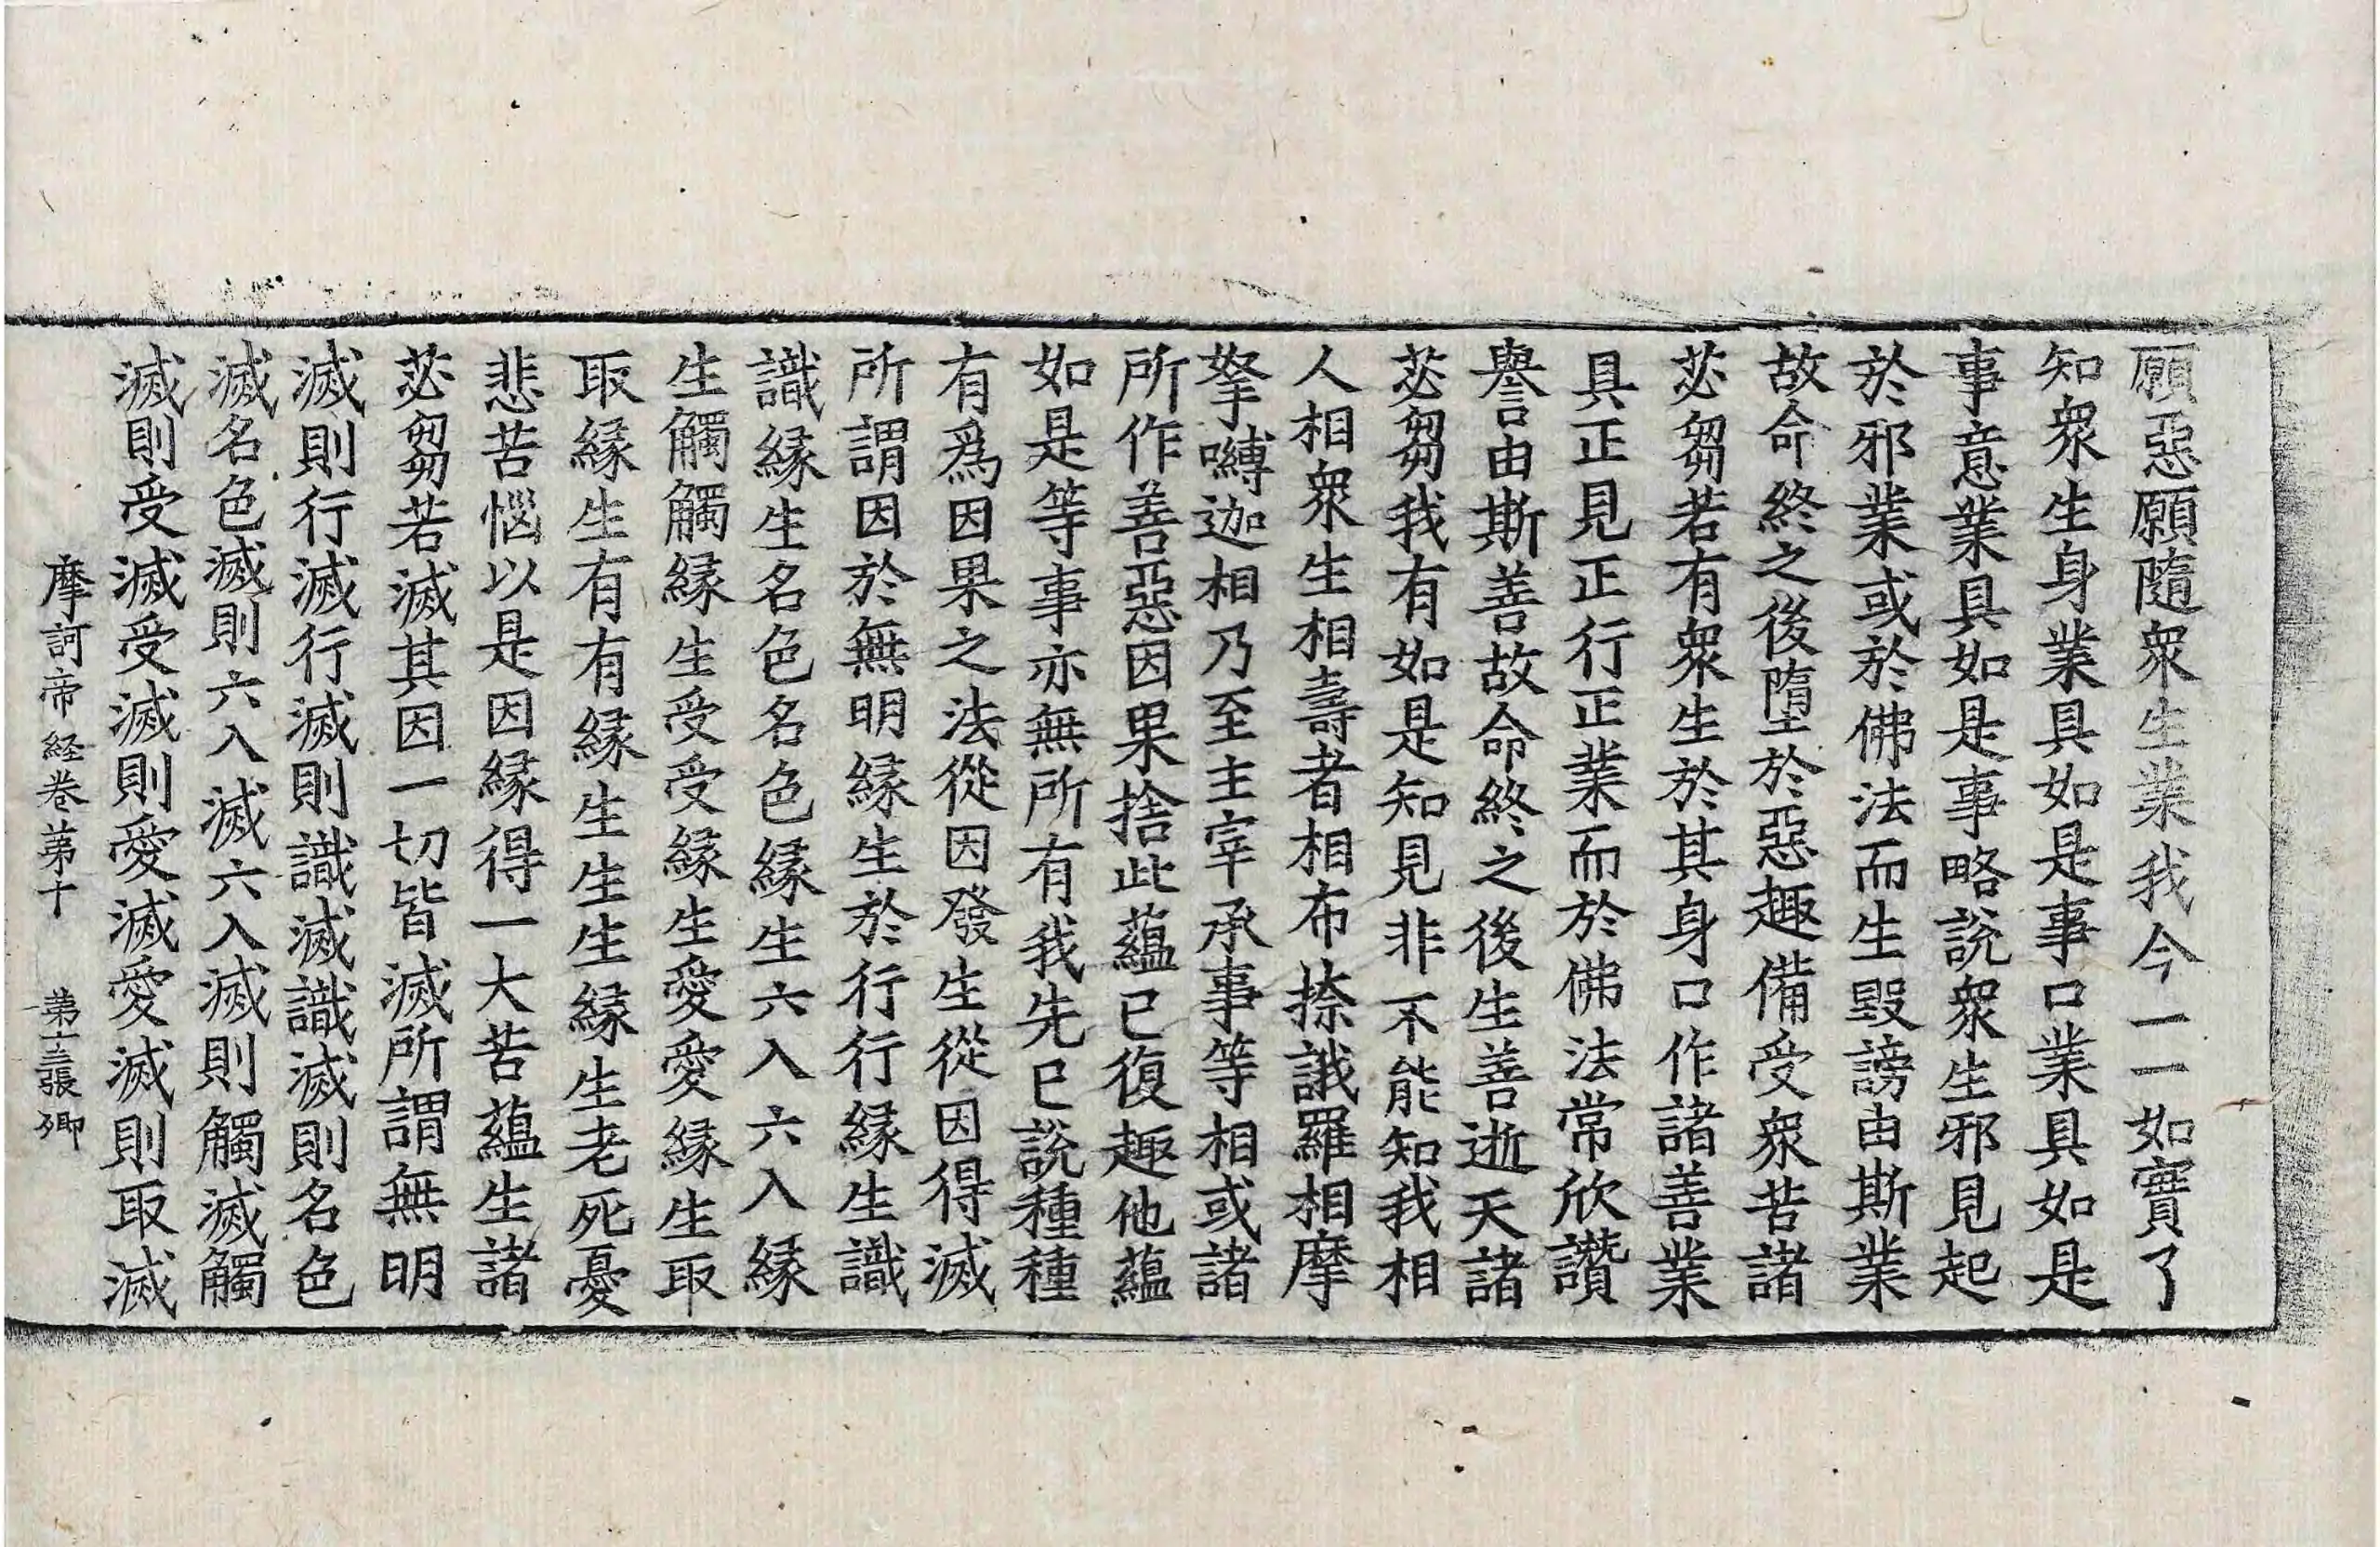 願惡願隨衆生業我今一一如實了
知衆生身業具如是事口業具如是
事意業具如是事略說衆生邪見起
於邪業或於佛法而生毀謗由斯業
故命終之後墮於惡趣備受衆苦諸
苾芻若有衆生於其身口作諸善業
具正見正行正業而於佛法常欣讚
譽由斯善故命終之後生善逝天諸
苾芻我有如是知見非不能知我相
人相衆生相壽者相布捺誐羅相摩
拏嚩迦相乃至主宰承事等相或諸
所作善惡因果捨此蘊已復趣他蘊
如是等事亦無所有我先已說種種
有爲因果之法從因發生從因得滅
所謂因於無明緣生於行行緣生識
識緣生名色名色緣生六入六入緣
生觸觸緣生受受緣生愛愛緣生取
取緣生有有緣生生生緣生老死憂
悲苦惱以是因緣得一大苦蘊生諸
苾芻若滅其因一切皆滅所謂無明
滅則行滅行滅則識滅識滅則名色
滅名色滅則六入滅六入滅則觸滅觸
滅則受滅受滅則愛滅愛滅則取滅
摩訶帝経卷第十 第十三張 卿